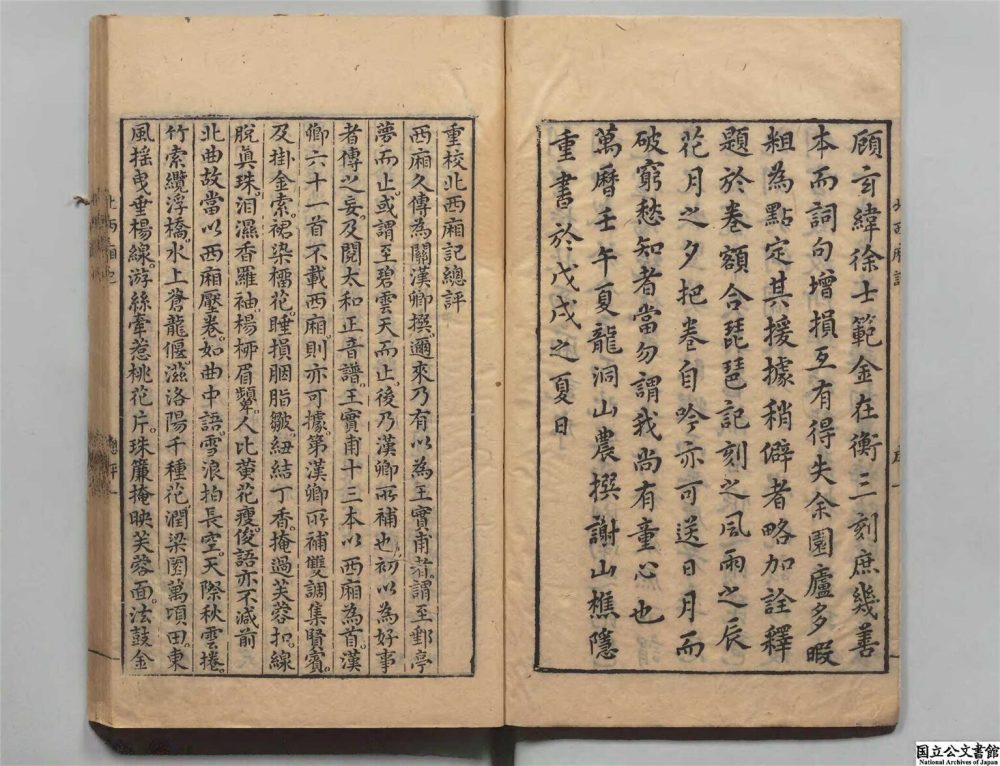 顧玄緯徐士範金在衡三刻庶幾善
本而詞句增損互有得失余園廬多暇
粗為點定其援據稍僻者略加詮釋
題於卷額合琵琶記刻之風雨之辰
花月之夕把卷自吟亦可送日月而
破窮愁知者當勿謂我尚有童心也
萬曆壬午夏龍洞山農撰謝山樵隱
重書於戊戌之夏日
重校北西廂記總評
西廂久傳為關漢卿撰邇來乃有以為王實甫者謂至郵亭
夢而止或謂至碧雲天而止後乃漢卿所補也初以為好事
者傳之妄及閱太和正音譜王實甫十三本以西廂為首漢
卿六十一首不載西廂則亦可據第漢卿所補雙調集賢賓
及掛金索裙染榴花睡損胭脂皺紐結丁香掩過芙蓉扣線
脫真珠淚濕香羅袖楊柳眉顰人比黃花瘦俊語亦不減前
北曲故當以西廂壓卷如曲中語雪浪拍長空天際秋雲捲
竹索纜浮橋水上蒼龍偃滋洛陽千種花潤梁園萬頃田東
風搖曳垂楊線游絲牽惹桃花片珠簾掩映芙蓉面法鼓金
北西廂記
總評
一
国立公文書館
National Archives of Japan